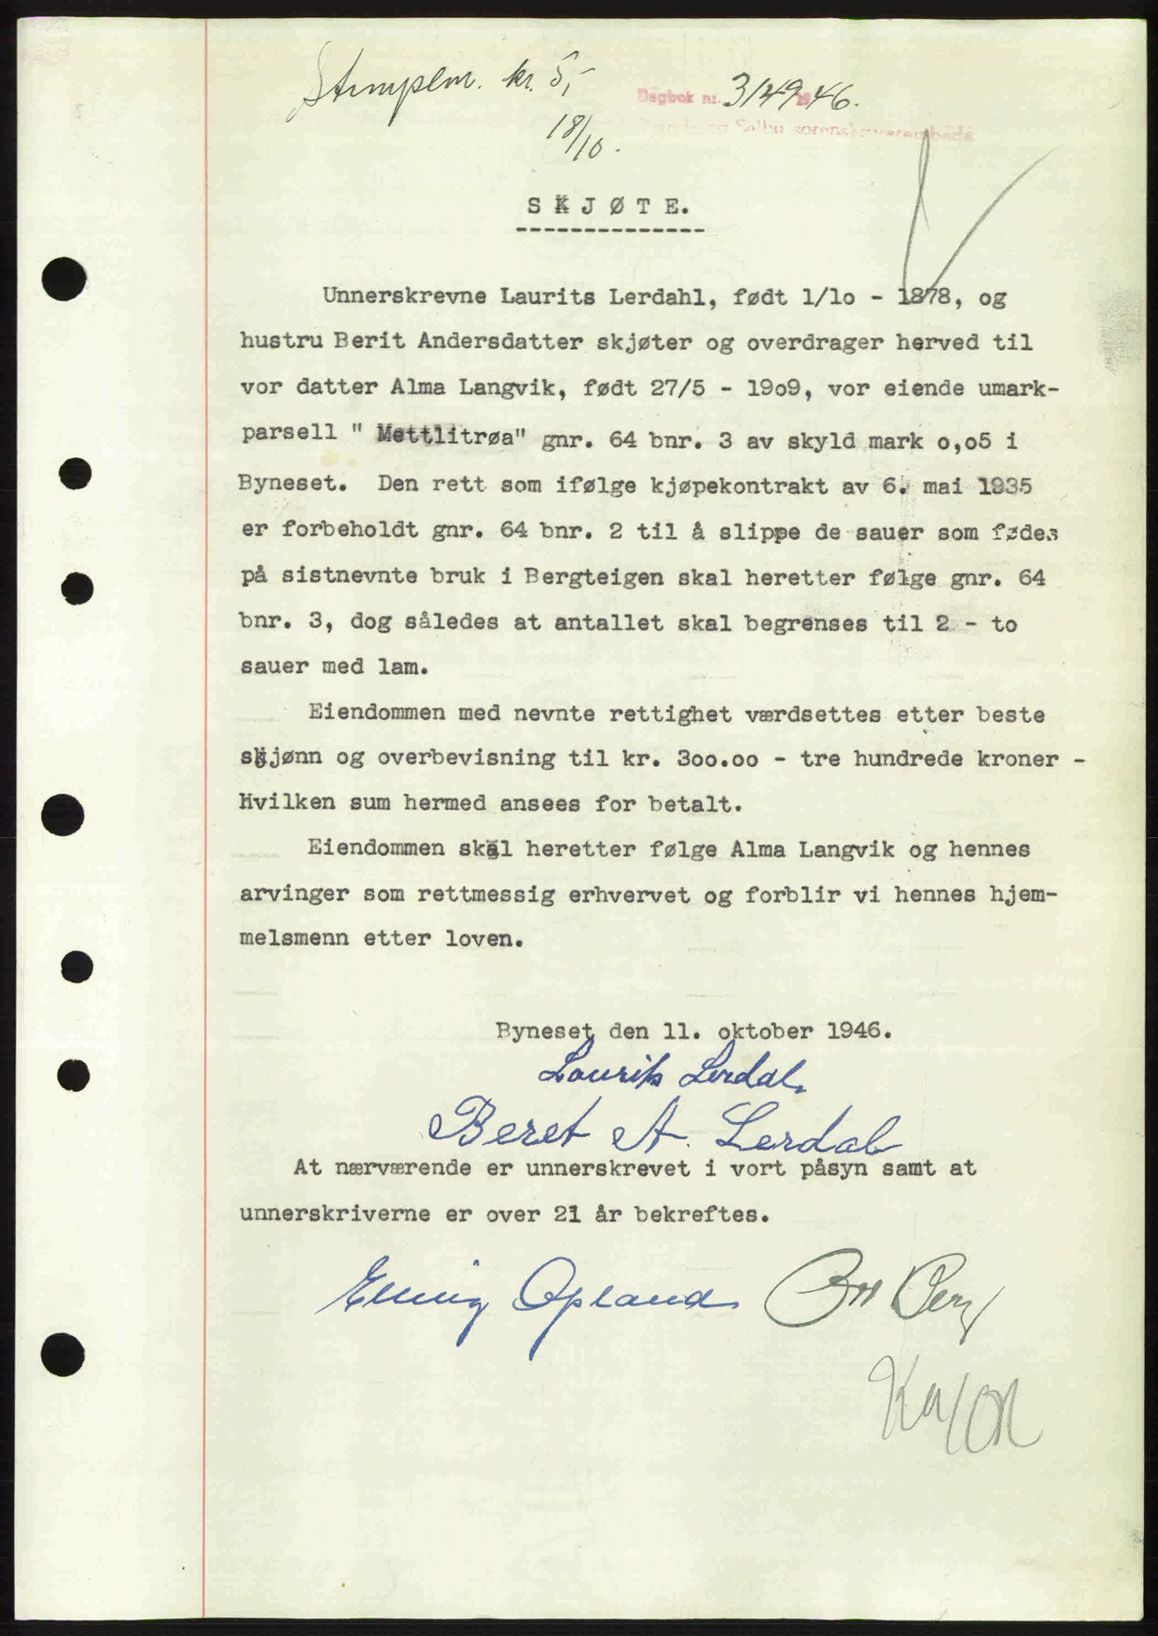 Stempelm. kr. 5,-
18/10.
Dagbok nr. 3149 1946.
Strinda og Selbu sorenskriverembede
SKJØTE.
Unnerskrevne Laurits Lerdahl, født 1/1o - 1878, og
hustru Berit Andersdatter skjøter og overdrager herved til
vor datter Alma Langvik, født 27/5 - 19o9, vor eiende umark-
parsell " Mettlitrøa" gnr. 64 bnr. 3 av skyld mark o,o5 i
Byneset. Den rett som ifølge kjøpekontrakt av 6. mai 1935
er forbeholdt gnr. 64 bnr. 2 til å slippe de sauer som fødes
på sistnevnte bruk i Bergteigen skal heretter følge gnr. 64
bnr. 3, dog således at antallet skal begrenses til 2 - to
sauer med lam.
Eiendommen med nevnte rettighet værdsettes etter beste
skjønn og overbevisning til kr. 3oo.oo - tre hundrede kroner -
Hvilken sum hermed ansees for betalt.
Eiendommen skal heretter følge Alma Langvik og hennes
arvinger som rettmessig erhvervet og forblir vi hennes hjem-
melsmenn etter loven.
Byneset den 11. oktober 1946.
Laurits Lerdal,
Beret A. Lerdal
At nærværende er unnerskrevet i vort påsyn samt at
unnerskriverne er over 21 år bekreftes.
Elling Opland Berg